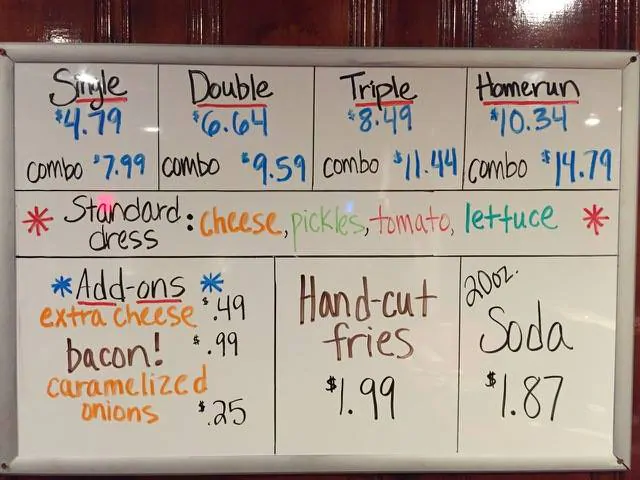 Single
$4.79
combo $7.99
Double
$6.64
combo $9.59
Triple
$8.49
combo $11.44
Homerun
$10.34
combo $14.79
* Standard dress: cheese, pickles, tomato, lettuce *
* Add-ons *
extra cheese $.49
bacon! $.99
caramelized
onions $.25
Hand-cut
fries
$1.99
20oz.
Soda
$1.87